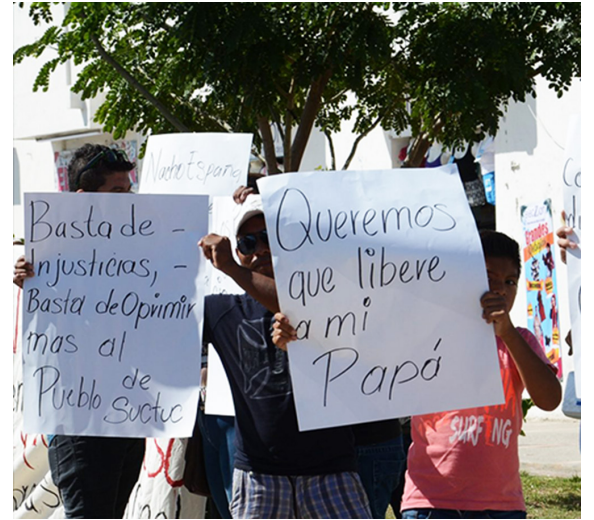 Nacho España
Basta de -
Injusticias, -
Basta de Oprimir
mas al
Pueblo de
Suctuc
Queremos
que libere
a mi
Papá
Grandes
SURF NG